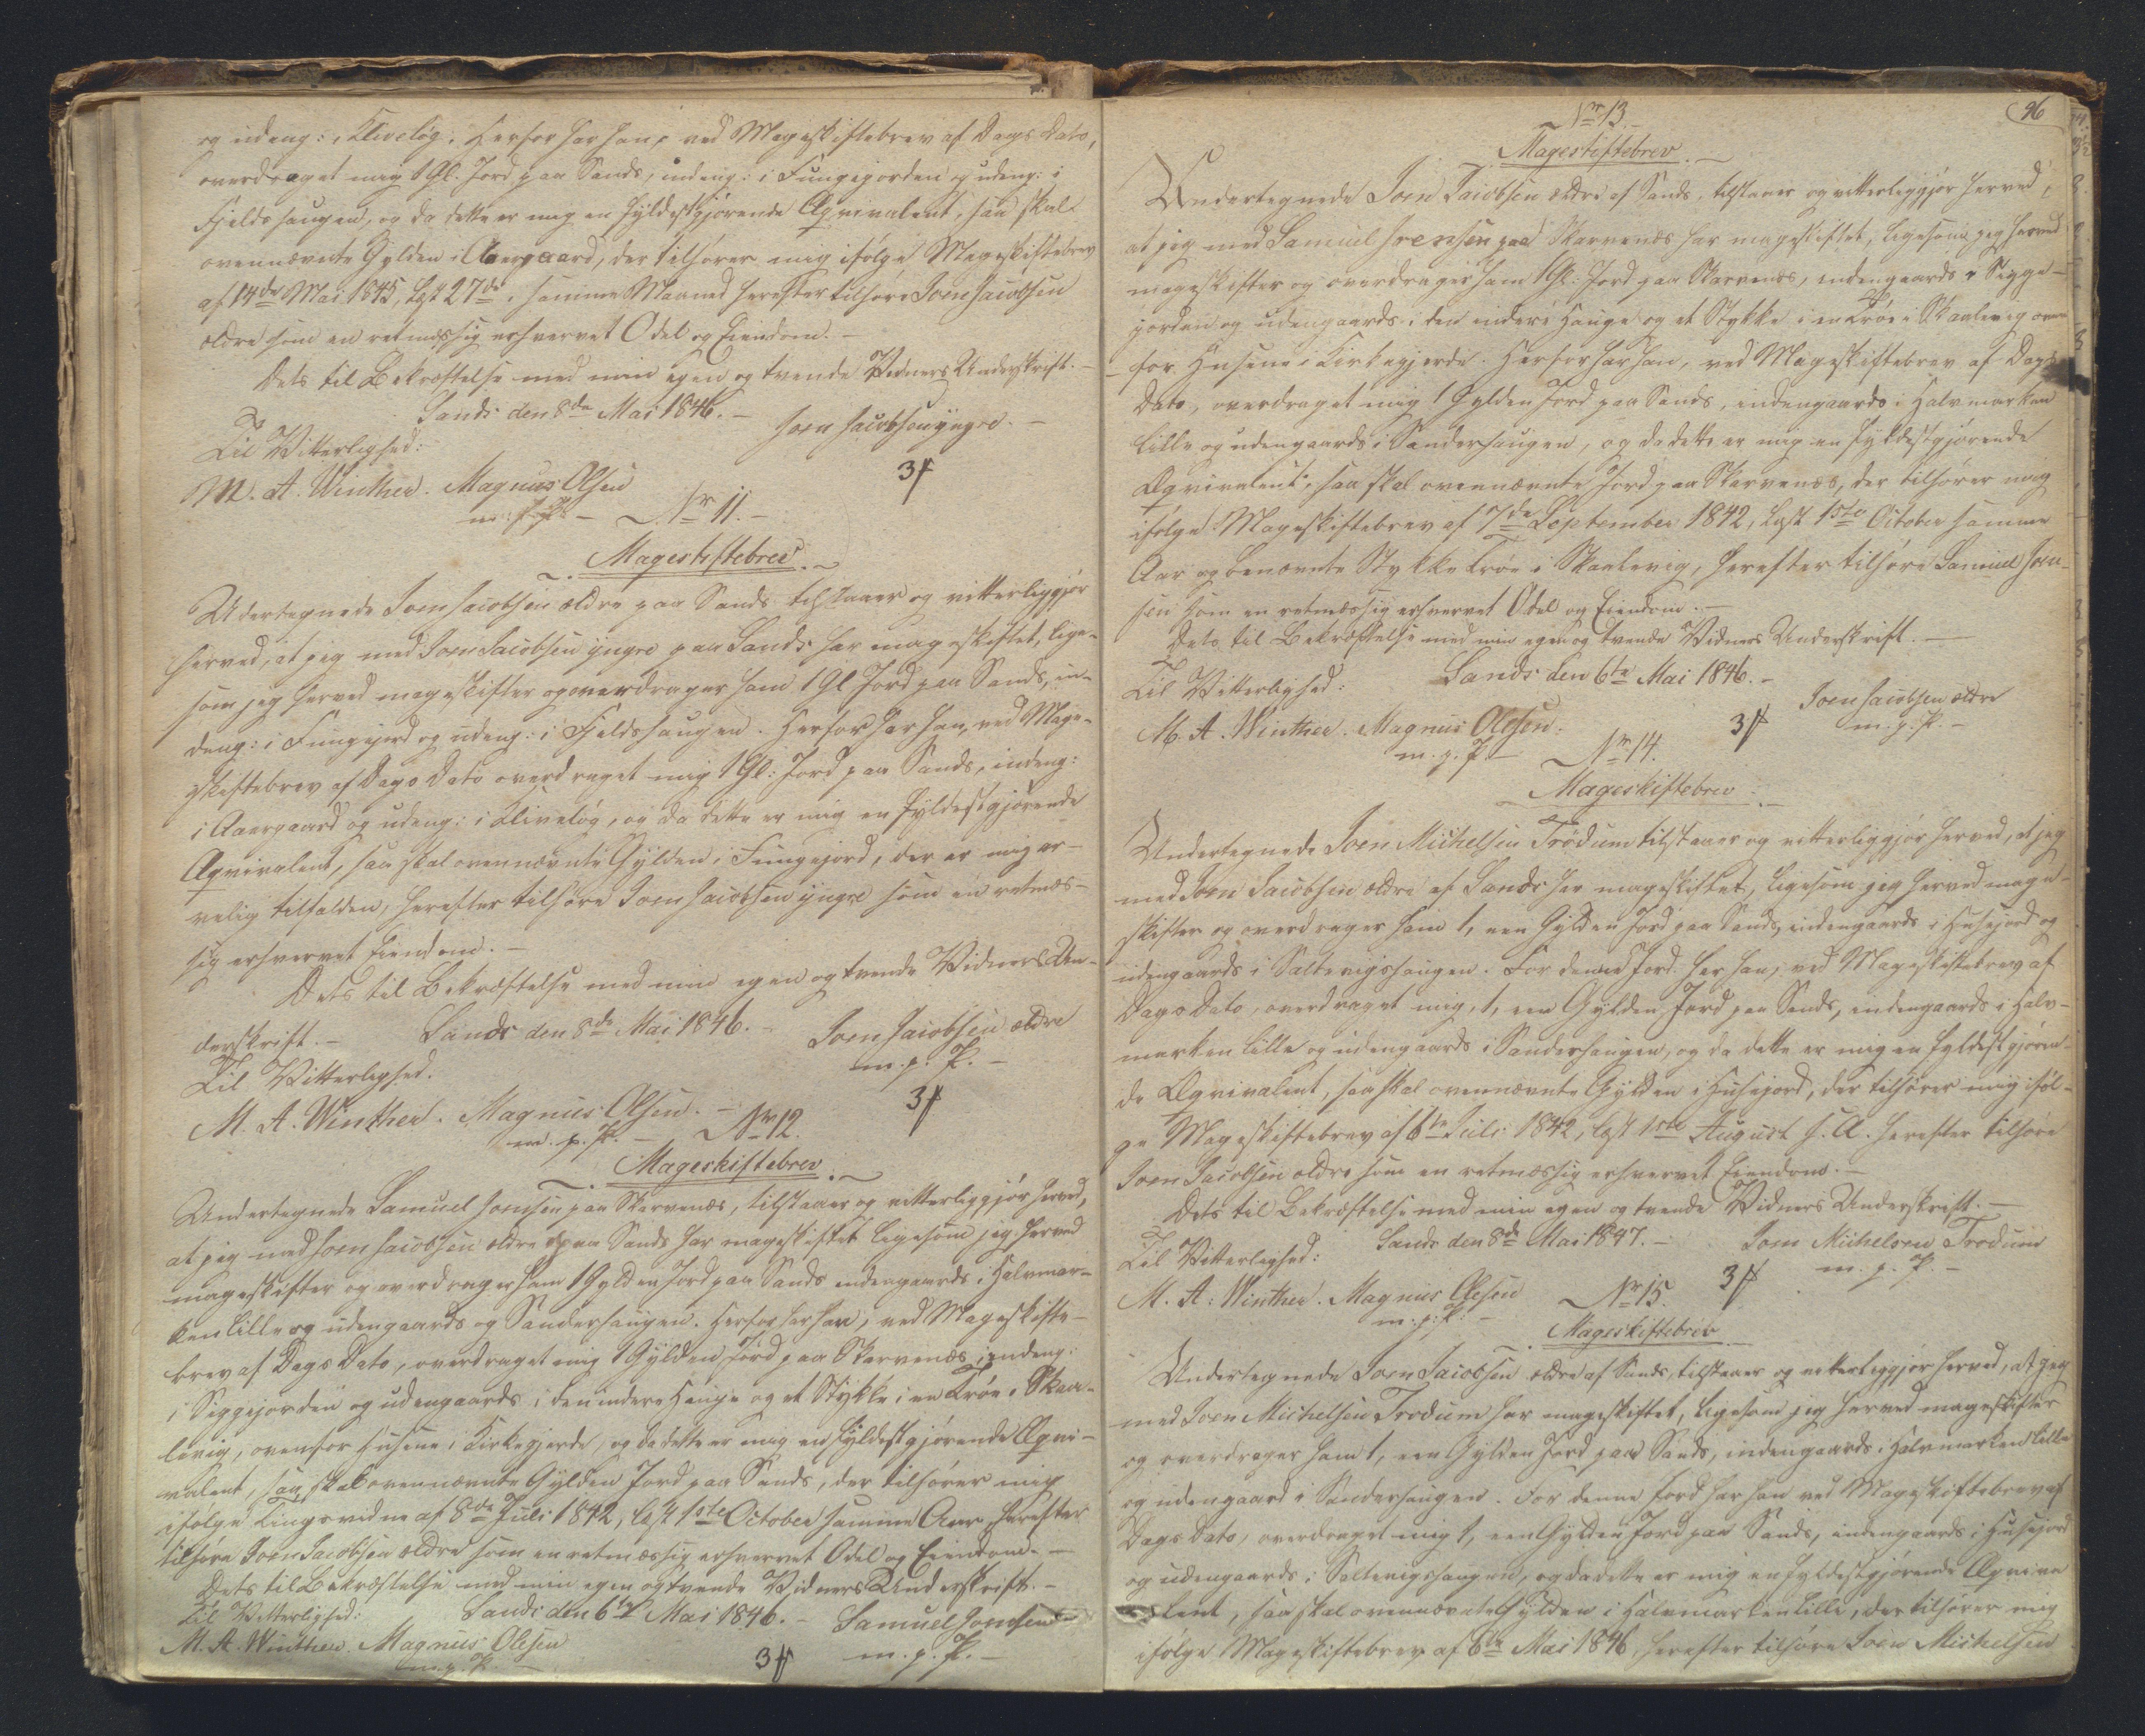 og udeng: i Kliveløg. Herfor har han, ved Mageskiftebrev af Dags Dato,
overdraget mig 1 Gl. Jord paa Sands, indeng: i Fungejorden og udeng: i
Fjeldshaugen, og da dette er mig en fyldestgjørende Æqvivalent, saa skal
ovennævnte Gylden i Aargaard, der tilhører mig ifølge Mageskiftebrev
af 14de Mai 1845, læst 27de i samme Maaned herefter tilhøre Joen Jacobsen
ældre som en retmæssig erhvervet Odel og Eiendom. –
Dets til Bekræftelse med min egen og tvende Vidners Underskrift. –
Sands den 8de Mai 1846. –
Til Vitterlighed: Joen Jacobsen yngre. –
M. A. Winther. Magnus Olsen 3 f
m. f. P. – Nr 11. –
Mageskiftebrev.
Undertegnede Joen Jacobsen ældre paa Sands tilstaaer og vitterliggjør
herved, at jeg med Joen Jacobsen yngre paa Sands har mageskiftet, lige-
som jeg herved mageskifter og overdrager ham 1 Gl Jord paa Sands, in-
deng: i Fungejord og udeng: i Fjeldshaugen. Herfor har han, ved Mage-
skiftebrev af Dags Dato overdraget mig 1 Gl: Jord paa Sands, indeng:
i Aaargaard og udeng: i Kliveløg, og da dette er mig en fyldestgjørende
Æqvivalent, saa skal ovennævnte Gylden i Fungejord, der er mig ar-
velig tilfalden, herefter tilhøre Joen Jacobsen yngre som en retmæs-
sig erhvervet Eiendom. –
Dets til Bekræftelse med min egen og tvende Vidners Un-
derskrift. – Sands den 8de Mai 1846. –
Til Vitterlighed. Joen Jacobsen ældre
m. p. P. –
M. A. Winther. Magnus Olsen. – 3 f
m. p. P. – Nr 12.
Mageskiftebrev.
Undertegnede Samuel Joensen paa Skarvenæs, tilstaaer og vitterliggjør herved,
at jeg med Joen Jacobsen ældre paa Sands har mageskiftet ligesom jeg herved
mageskifter og overdrager ham 1 Gylden Jord paa Sands indengaards i Halvmar-
ken lille og udengaards og Sandershaugen. Herfor har han, ved Mageskifte-
brev af Dags Dato, overdraget mig 1 Gylden Jord paa Skarvenæs, indeng:
i Siggejorden og udengaards i den indere Hauge og et Stykke i en Trøe i Skaa-
levig, ovenfor Husene i Kirkegjerde, og da dette er mig en fyldestgjørende Æqvi-
valent, saa skal ovennævnte Gylden Jord paa Sands, der tilhører mig
ifølge Tingsvidne af 8de Juli 1842, læst 1ste October samme Aar herefter
tilhøre Joen Jacobsen ældre som en retmæssig erhvervet Odel og Eiendom. –
Dets til Bekræftelse med min egen og tvende Vidners Underskrift. –
Til Vitterlighed: Sands den 6te Mai 1846. – Samuel Joensen
M. A. Winther. Magnus Olesen 3 f m. p. P. –
m. p. P. –
96
Nr 13
Mageskiftebrev. –
Undertegnede Joen Jacobsen ældre af Sands, tilstaaer og vitterliggjør herved,
at jeg med Samuel Joensen paa Skarvenæs har mageskiftet, ligesom jeg herved
mageskifter og overdrager ham 1 Gl: Jord paa Skarvenæs, indengaards i Sigge-
jorden og udengaards i den indere Hauge og et Stykke i en Trøe i Skaalevig oven
for Husene i Kirkegjerde. Herfor har han, ved Mageskiftebrev af Dags
Dato, overdraget mig 1 Gylden Jord paa Sands, indengaards i Halvmarken
lille og udengaards i Sandershaugen, og da dette er mig en fyldestgjørende
Æqvivalent, saa skal ovennævnte Jord paa Skarvenæs, der tilhører mig
ifølge Mageskiftebrev af 7de September 1842, læst 1ste October samme
Aar og benævnte Stykke Trøe i Skaalevig, herefter tilhøre Samuel Joen-
sen som en retmæssig erhvervet Odel og Eiendom. –
Dets til Bekræftelse med min egen og tvende Vidners Underskrift. –
Til Vitterlighed: Sands den 6te Mai 1846. –
Joen Jacobsen ældre
M. A. Winther. Magnus Olesen. 3 f m. p. P. –
m. p. P. – Nr 14.
Mageskiftebrev. –
Undertegnede Joen Michelsen Trødum tilstaaer og vitterliggjør herved, at jeg
med Joen Jacobsen ældre af Sands har mageskiftet, ligesom jeg herved mage-
skifter og overdrager ham 1, een Gylden Jord paa Sands, indengaards i Husejord og
udengaards i Saltevigshaugen. For denne Jord har han, ved Mageskiftebrev af
Dags Dato, overdraget mig, 1, een Gylden Jord paa Sands, indengaards i Halv-
marken lille og udengaards i Sandershaugen, og da dette er mig en fyldestgjøren-
de Æqvivalent, saa skal ovennævnte Gylden i Husejord, der tilhører mig iføl-
ge Mageskiftebrev af 6te Juli 1842, læst 1ste August s. A. herefter tilhøre
Joen Jacobsen ældre som en retmæssig erhvervet Eiendom. –
Dets til Bekræftelse med min egen og tvende Vidners Underskrift. –
Til Vitterlighed: Sands den 8de Mai 1847. – Joen Michelsen Trodum
M. A. Winther. Magnus Olesen Nr 15. 3 f m. p. P. –
m. p. P. –
Mageskiftebrev
Undertegnede Joen Jacobsen ældre af Sands, tilstaaer og vitterliggjør herved, at jeg
med Joen Michelsen Trodum har mageskiftet, ligesom jeg herved mageskifter
og overdrager ham 1, een Gylden Jord paa Sands, indengaards i Halvmarken lille
og udengaard i Sandershaugen. For denne Jord har han ved Mageskiftebrev af
Dags Dato, overdraget mig 1, een Gylden Jord paa Sands, indengaards i Husejord
og udengaards i Saltevigshaugen, og da dette er mig en fyldestgjørende Æqviva
lent, saa skal ovennævnte Gylden i Halvmarken lille, der tilhører mig
ifølge Mageskiftebrev af 6te Mai 1846, herefter tilhøre Joen Michelsen